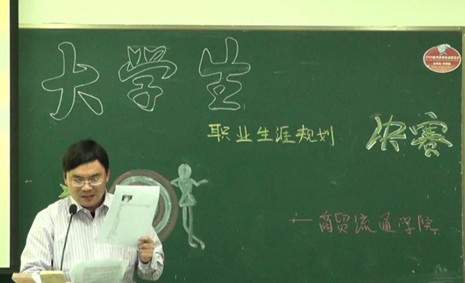 大学生
职业生涯规划 决赛
一商贸流通学院